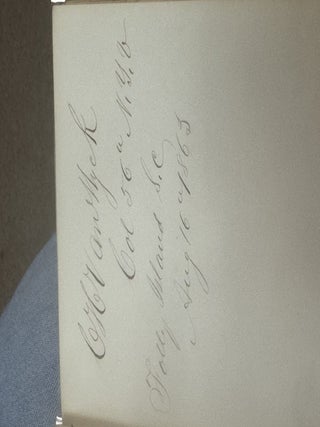 C H Van Wyck
Col 56th N.Y.V
Folly Island S.C
Aug 16th 1863